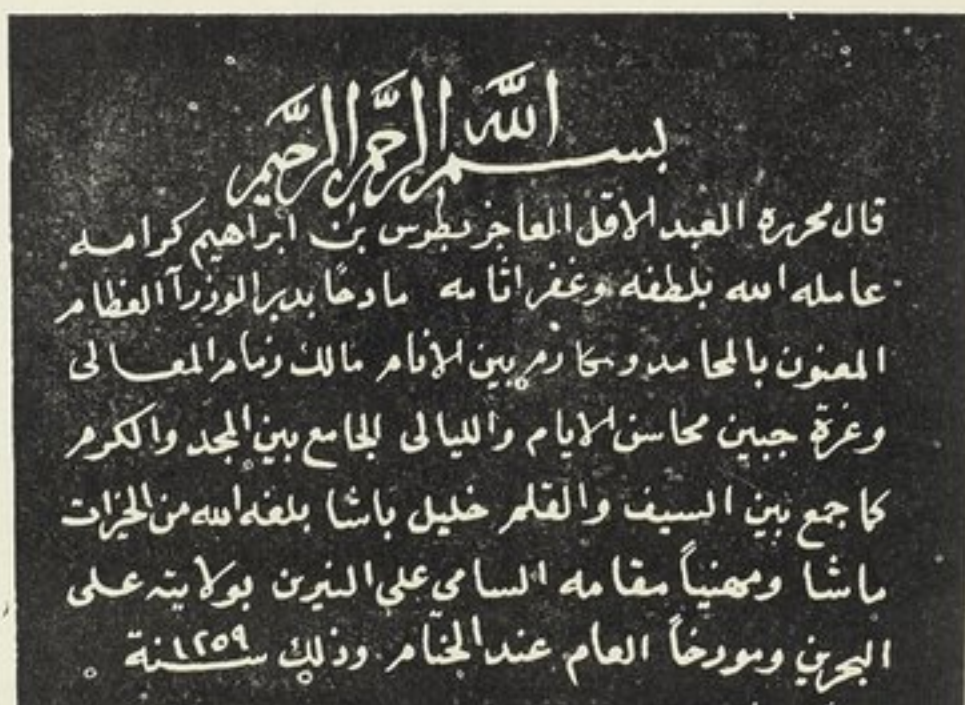 بسم الله الرحمن الرحيم
قال محرره العبد الاقل العاجز بطرس بن ابراهيم كرامه
عامله الله بلطفه وغفر اثامه مادحًا بدر الوزرآ العظام
المعنون بالمحامد ومكارم بين الانام مالك زمام المعالى
وغرة جبين محاسن الايام والليالى الجامع بين المجد والكرم
كما جمع بين السيف والقلم خليل باشا بلغه الله من الخيرات
ماشا ومهنياً مقامه السامى على النيرين بولايته على
البحرين ومورخاً العام عند الختام وذلك سنة ١٢٥٩